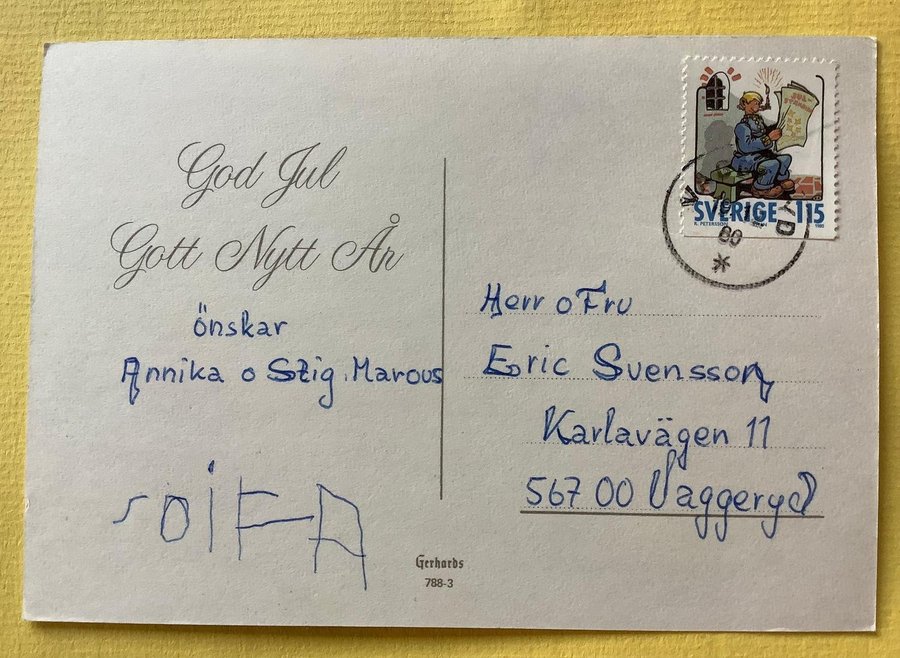 God Jul
Gott Nytt År
önskar
Annika o Stig. Marcus
SOiFA
Gerhards
788-3
JUL-
SVERIGE 115
R. PETERSSON
1980
80
Herr o Fru
Eric Svensson
Karlavägen 11
567 00 Vaggeryd